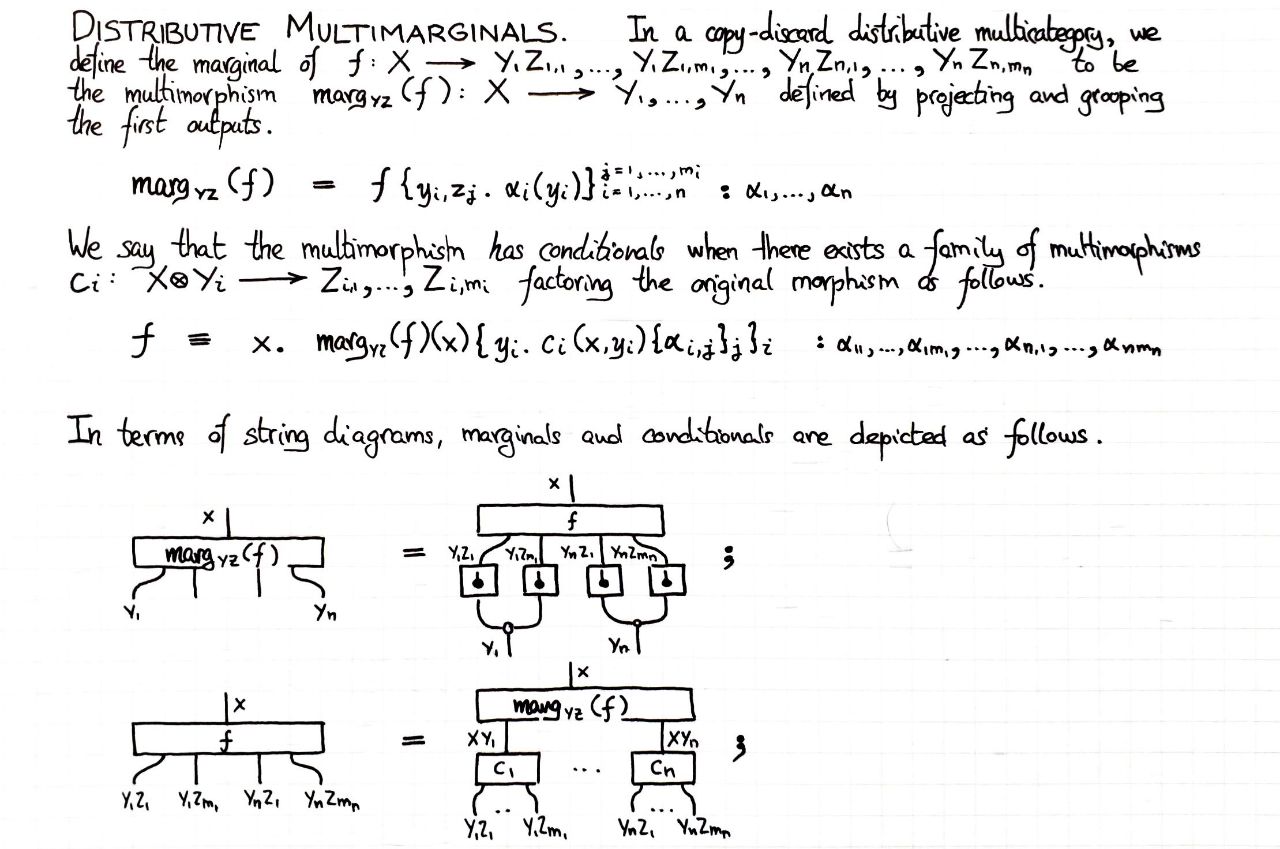 DISTRIBUTIVE MULTIMARGINALS. In a copy-discard distributive multicategory, we
define the marginal of f: X ⟶ Y₁Z₁,₁,..., Y₁Z₁,m₁,..., YₙZₙ,₁, ..., YₙZₙ,mₙ to be
the multimorphism marg_YZ(f): X ⟶ Y₁,..., Yₙ defined by projecting and grooping
the first outputs.
marg_YZ(f) = f{yᵢ,zⱼ. αᵢ(yᵢ)}^{j=1,...,mᵢ}_{i=1,...,n} : α₁,...,αₙ
We say that the multimorphism has conditionals when there exists a family of multimorphisms
Cᵢ: X⊗Yᵢ ⟶ Zᵢ,₁,..., Zᵢ,mᵢ factoring the original morphism as follows.
f ≡ x. marg_YZ(f)(x){yᵢ. Cᵢ(x,yᵢ){αᵢ,ⱼ}ⱼ}ᵢ : α₁₁,...,α₁m₁,...,αₙ,₁,...,αₙmₙ
In terms of string diagrams, marginals and conditionals are depicted as follows.
X
marg_YZ(f)
Y₁ Yₙ
=
X
f
Y₁Z₁ Y₁Zm₁ YₙZ₁ YₙZmₙ
Y₁ Yₙ
;
X
f
Y₁Z₁ Y₁Zm₁ YₙZ₁ YₙZmₙ
=
X
marg_YZ(f)
XY₁ XYₙ
C₁ ... Cₙ
.. ...
Y₁Z₁ Y₁Zm₁ YₙZ₁ YₙZmₙ
;